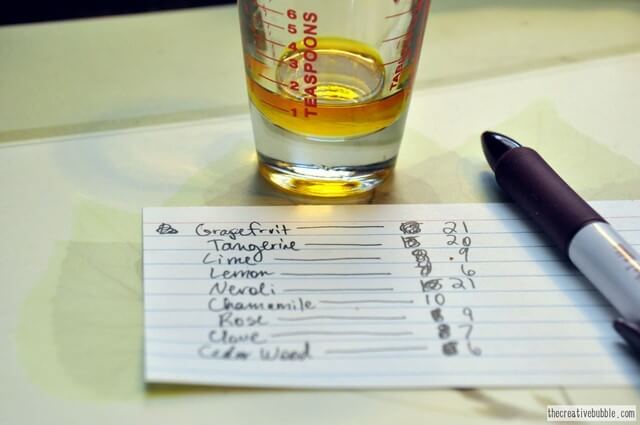 6
5
4
3
2
1
TEASPOONS
TAB
Grapefruit 21
Tangerine 20
Lime 9
Lemon 6
Neroli 21
Chamomile 10
Rose 9
Clove 7
Cedar Wood 6
thecreativebubble.com